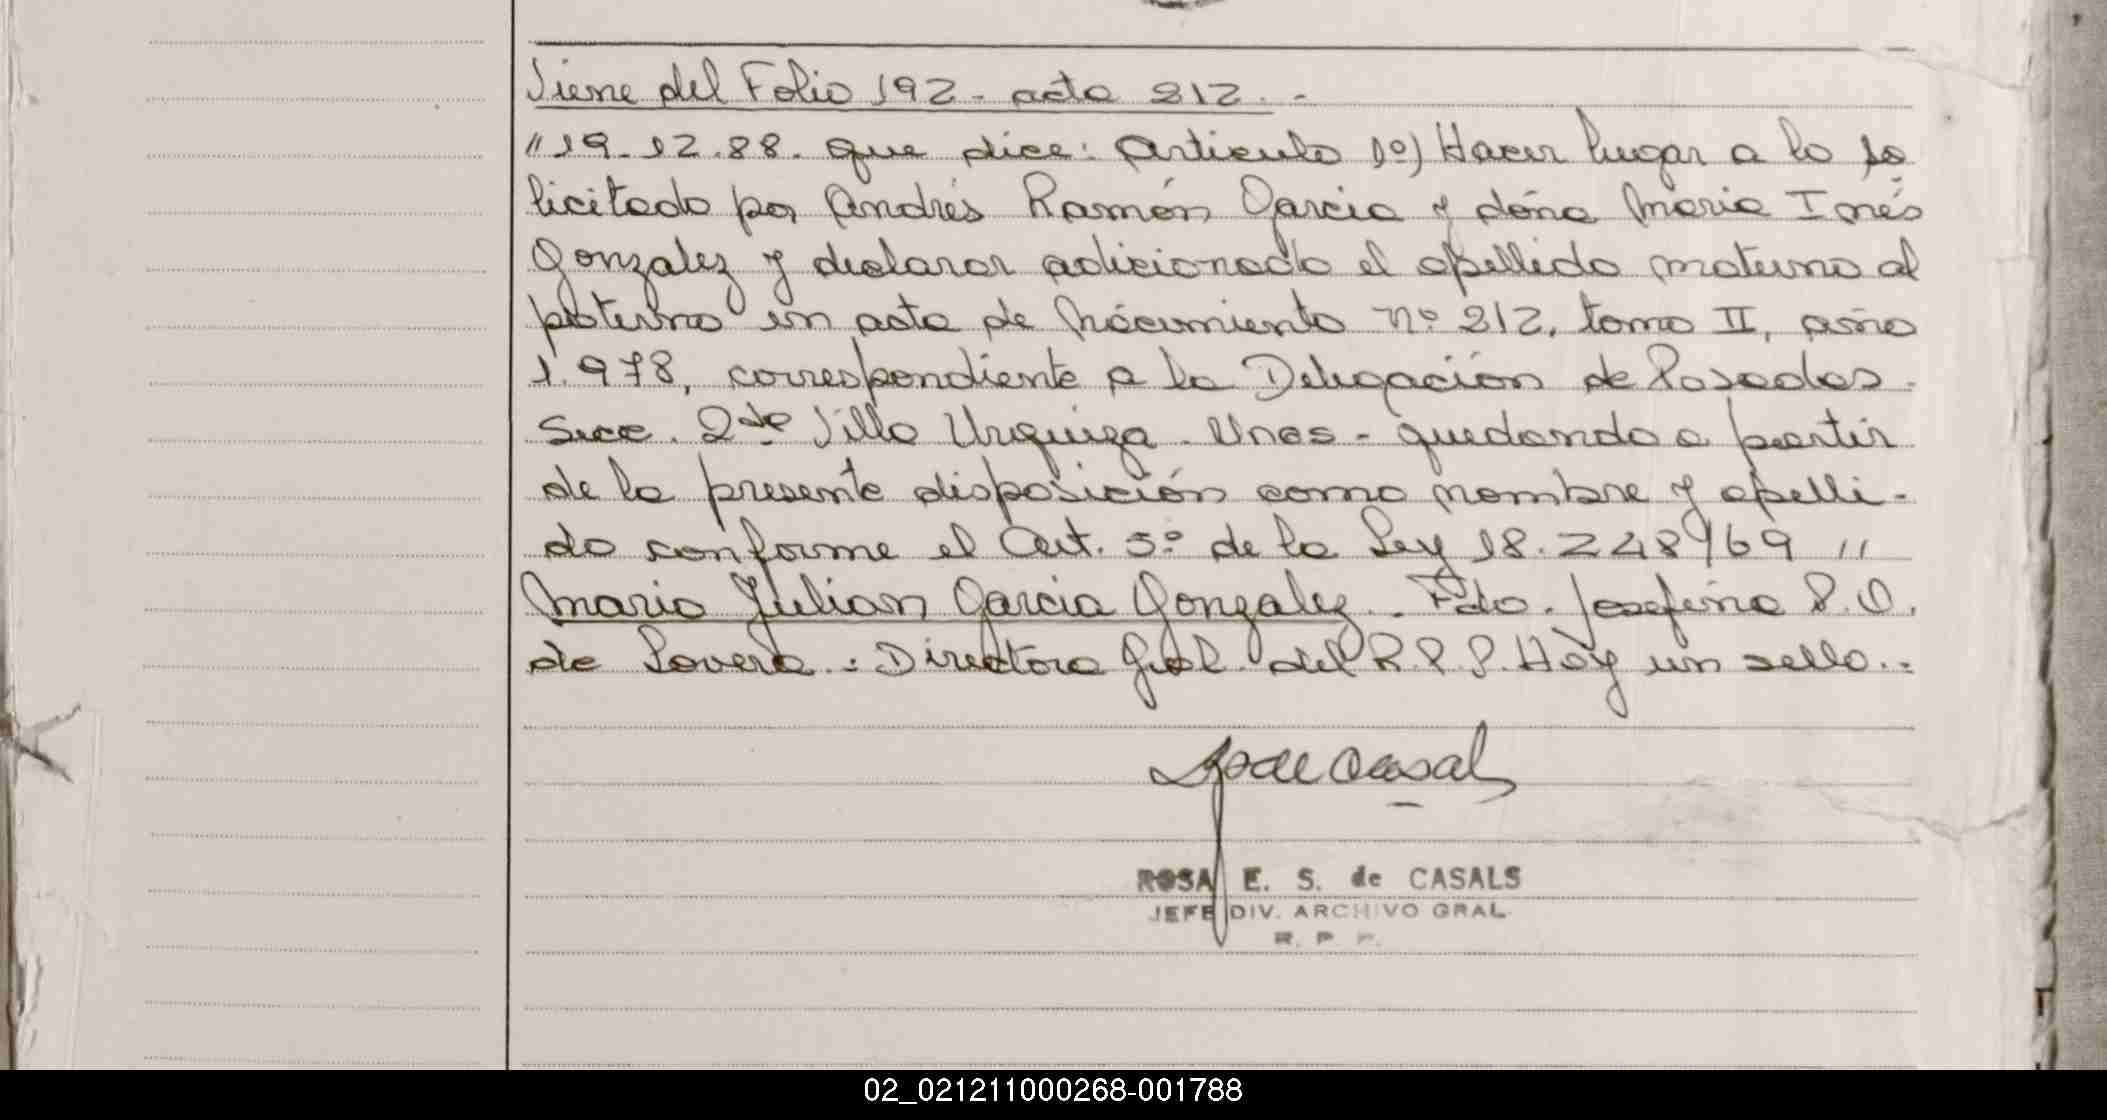 Viene del Folio 192 - acta 212. -
"19-12.88. que dice: Articulo 1º) Hacer lugar a lo so
licitado por Andrés Ramón Garcia y doña Maria Inés
Gonzalez y declarar adicionado el apellido materno al
paterno en acta de Nacimiento nº 212, tomo II, año
1.978, correspondiente a la Delegación de Posadas.
Secc. 2da Villa Urquiza - Mnes - quedando a partir
de la presente disposición como nombre y apelli-
do conforme el Art. 5º de la Ley 18.248/69 "
Mario Julian Garcia Gonzalez. Fdo. Josefina P. O.
de Lovera.: Directora Gral. del R.P.P. Hay un sello..
ROSA E. S. de CASALS
JEFE DIV. ARCHIVO GRAL
R. P. P.
02_021211000268-001788